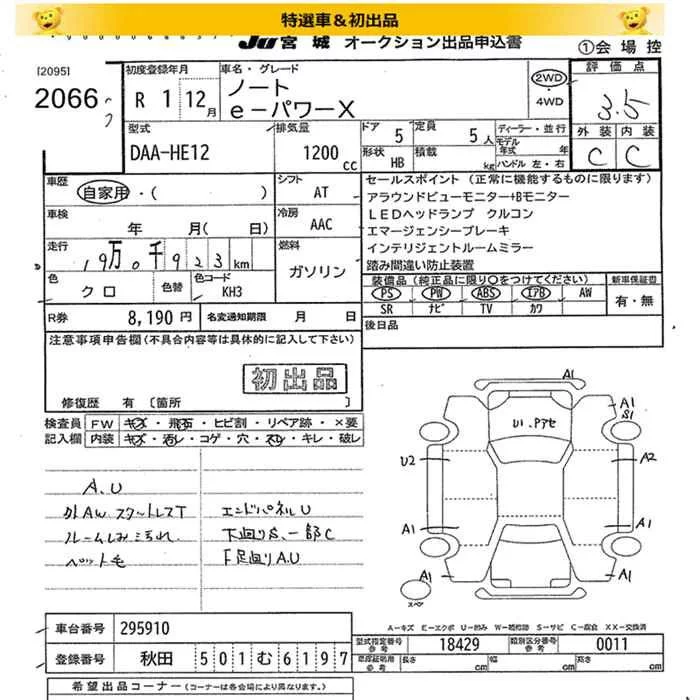 特選車＆初出品
JU宮城 オークション出品申込書
①会場控
[2095]
2066
初度登録年月
R 1 12月
車名・グレード
ノート
e－パワーX
2WD
・4WD
評価点
3.5
外装 内装
C C
型式
DAA-HE12
排気量
1200cc
ドア 5
定員 5人
形状 HB
積載 kg
ディーラー・並行
モデル年式 年
ハンドル 左・右
車歴
自家用・( )
シフト
AT
車検
年 月( 日)
冷房
AAC
走行
19万0千923km
燃料
ガソリン
色
クロ
色替
色コード
KH3
セールスポイント (正常に機能するものに限ります)
アラウンドビューモニター+Bモニター
LEDヘッドランプ クルコン
エマージェンシーブレーキ
インテリジェントルームミラー
踏み間違い防止装置
装備品(純正品に限り〇をつけてください)
新車保証書
PS PW ABS エアB AW
SR ナビ TV カワ
有・無
R券 8,190円
名変通知期限 月 日
後日品
注意事項申告欄(不具合内容等は具体的に記入して下さい)
初出品
修復歴 有 〔箇所 〕
検査員記入欄
FW キズ・飛石・ヒビ割・リペア跡・×要
内装 キズ・汚レ・コゲ・穴・スレ・キレ・破レ
A.U
外AW スタットレスT
ルームしみ汚れ
ペット毛
エンドパネルU
下廻りS、一部C
下足廻りA.U
A1
U1.Pアセ
A1
S1
U2
A2
A1
A1
A1
A1
スペア
A－キズ E－エクボ U－凹み W－補修跡 S－サビ C－腐食 XX－交換済
車台番号 295910
登録番号 秋田 501む6197
型式指定番号 参考 18429
類別区分番号 参考 0011
車庫証明用 参考 長さ cm 幅 cm 高さ cm
希望出品コーナー(コーナーは各会場により異なります。)